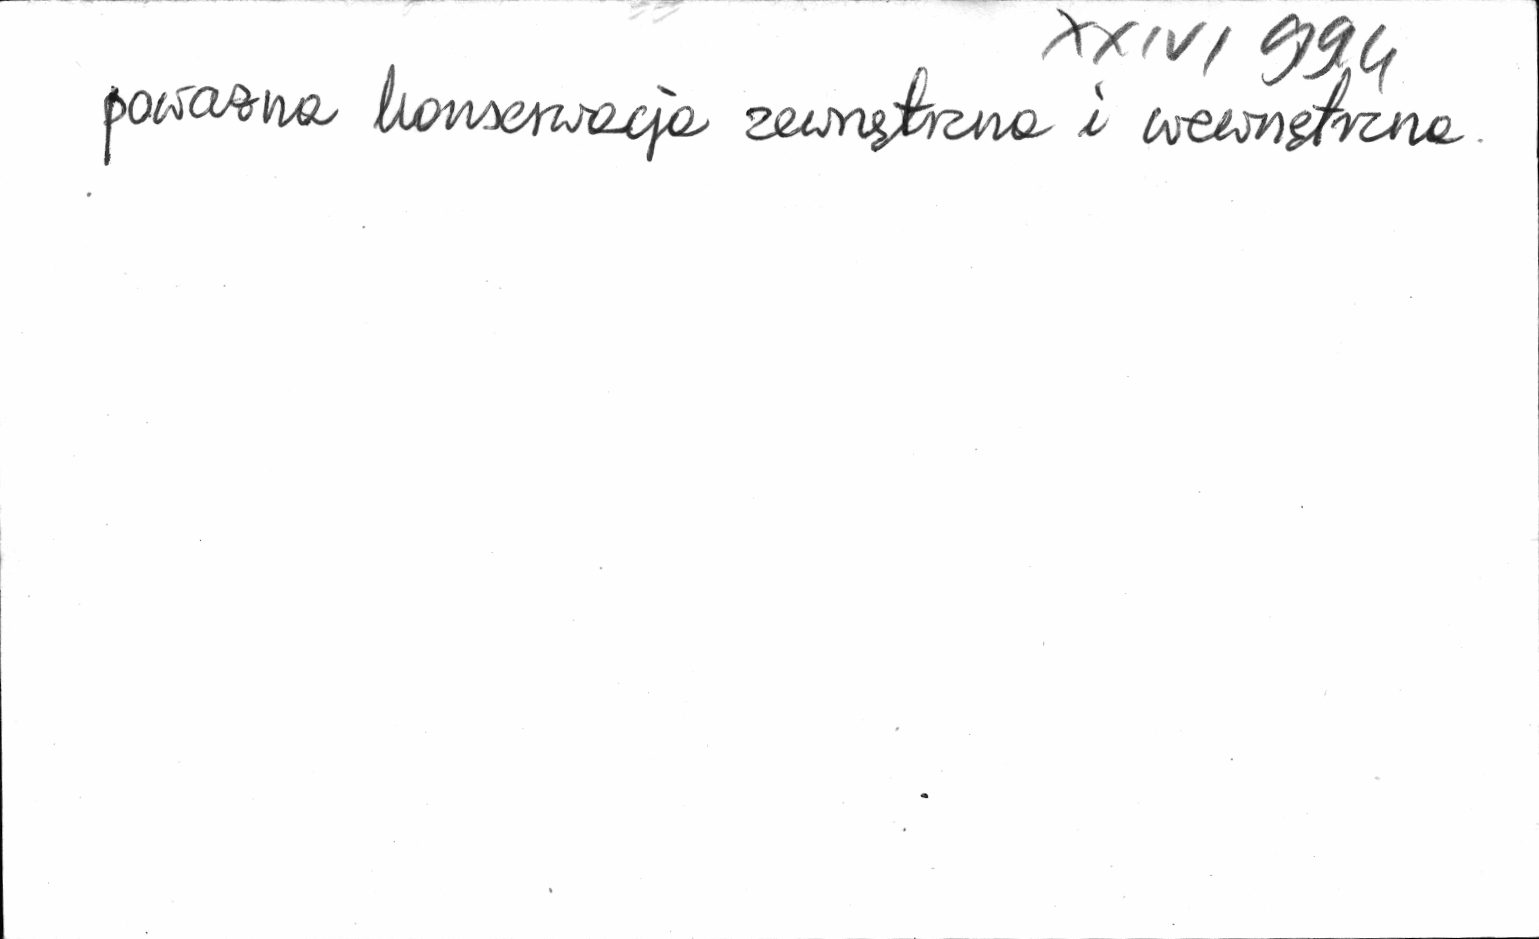 XXIVI 994
poważna konserwacja zewnętrzna i wewnętrzna.